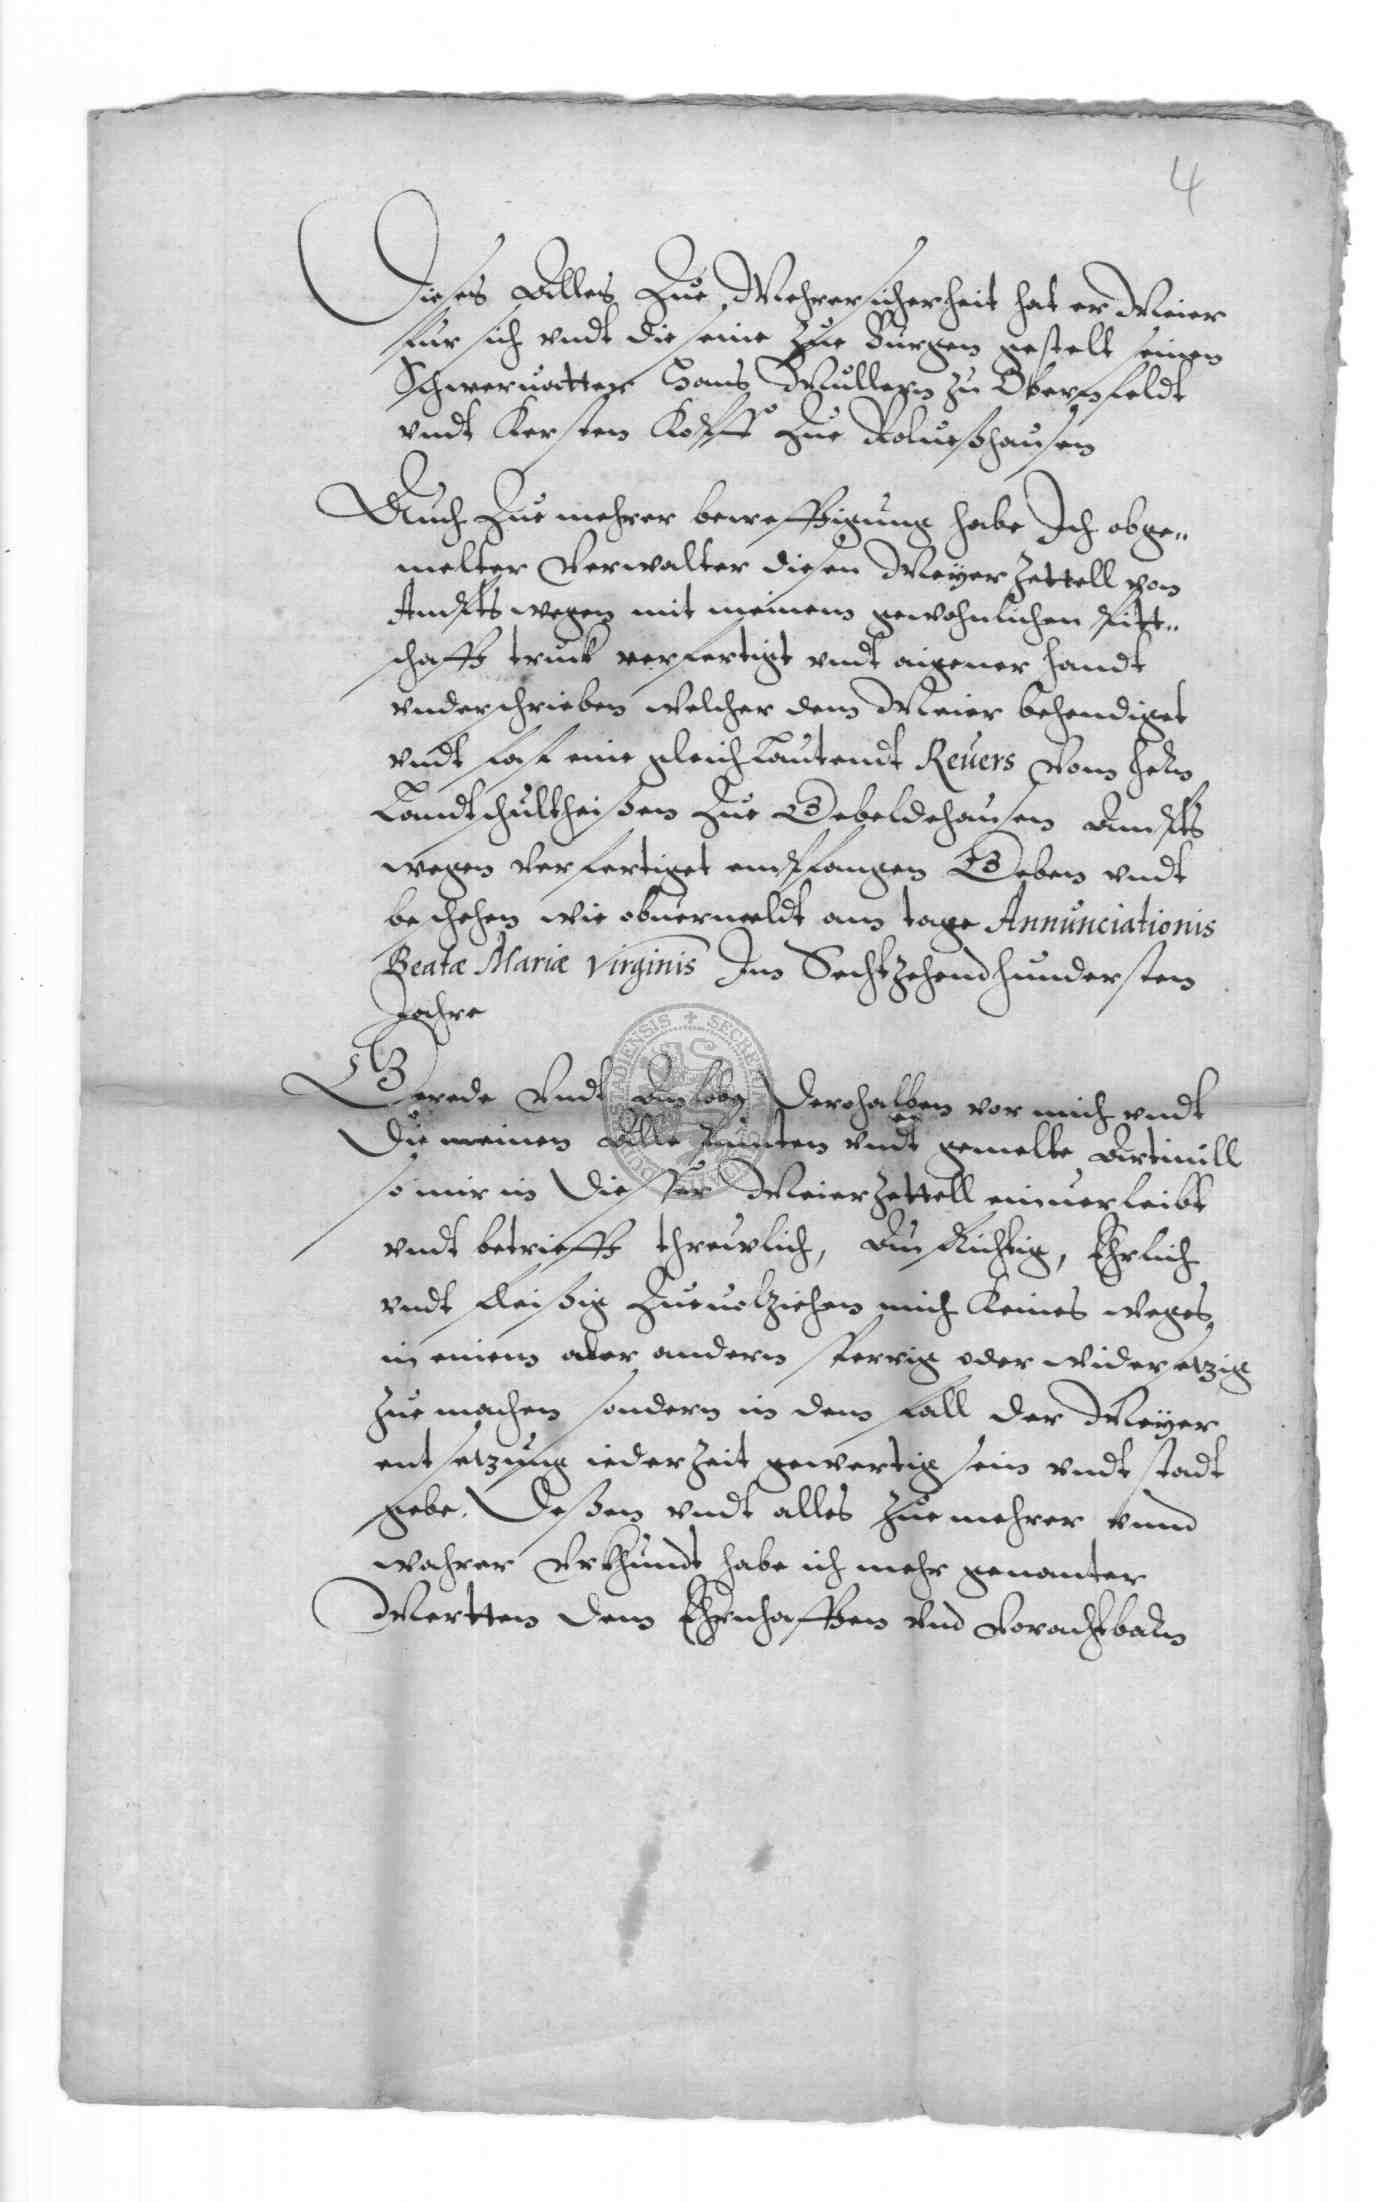 4
Dieses Alles Zue Mehrersicherheit hat er Meier
für sich undt die seine Zue Burgen gestelt seinen
Schwervatter Hans Müllern zu Obernfeldt
vndt Kersten Zue Roluesshausen
Auch Zue mehrer bevesstigung habe Ich obge„
melter Verwalter diesen Meyer Zettell von
Ambts wegen mit meinem gewohnlichen Pitt„
schafft truck verfertigt vndt aigener handt
vnderschrieben welcher dem Meier behendiget
vndt eine gleich Lautendt Reuers Vom Hern
Landtschultheißen Zue Gebeldehausen Ambts
wegen verfertiget empfangen Geben vndt
beschehen wie obuermeldt am tage Annunciationis
Beatæ Mariæ Virginis Im Sechtzehendhundersten
Jahre
Gerede Vndt Anlobe Derohalben vor mich vndt
Die meinen Alle Puncten vndt gemelte Articull
so mir in Diesser Meier Zettell einuerleibt
vndt betriefft threwlich, Auffrichtig, Ehrlich
vndt fleißig Zueuolziehen mich Keines weges
in einem ader andern sperrig oder widersetzig
Zue machen sondern in dem fall der Meyer
entsetzung ieder Zeit gewertig sein vndt stadt
gebe. Deßen vndt alles Zue mehrer vnnd
wahrer Vrkhundt habe ich mehr genanter
Mertten Dem Ehrnhafften Vnd Vorachtbarn